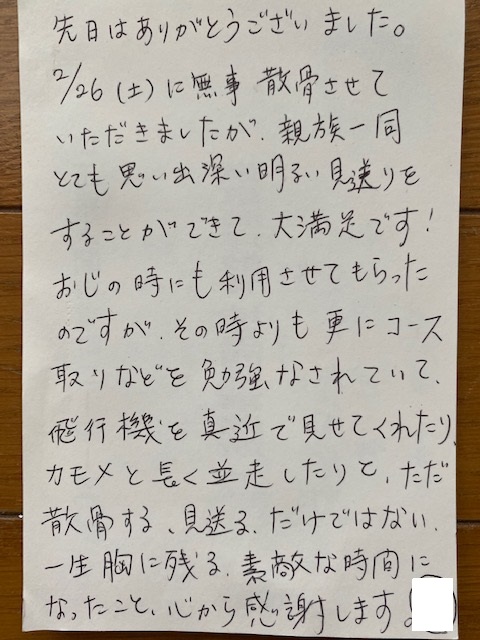 先日はありがとうございました。
2/26(土)に無事 散骨させて
いただきましたが、親族一同
とても思い出深い明るい見送りを
することができて、大満足です!
おじの時にも利用させてもらった
のですが、その時よりも更にコース
取りなどを勉強なされていて、
飛行機を真近で見せてくれたり、
カモメと長く並走したりと、ただ
散骨する、見送る、だけではない、
一生胸に残る、素敵な時間に
なったこと、心から感謝します。